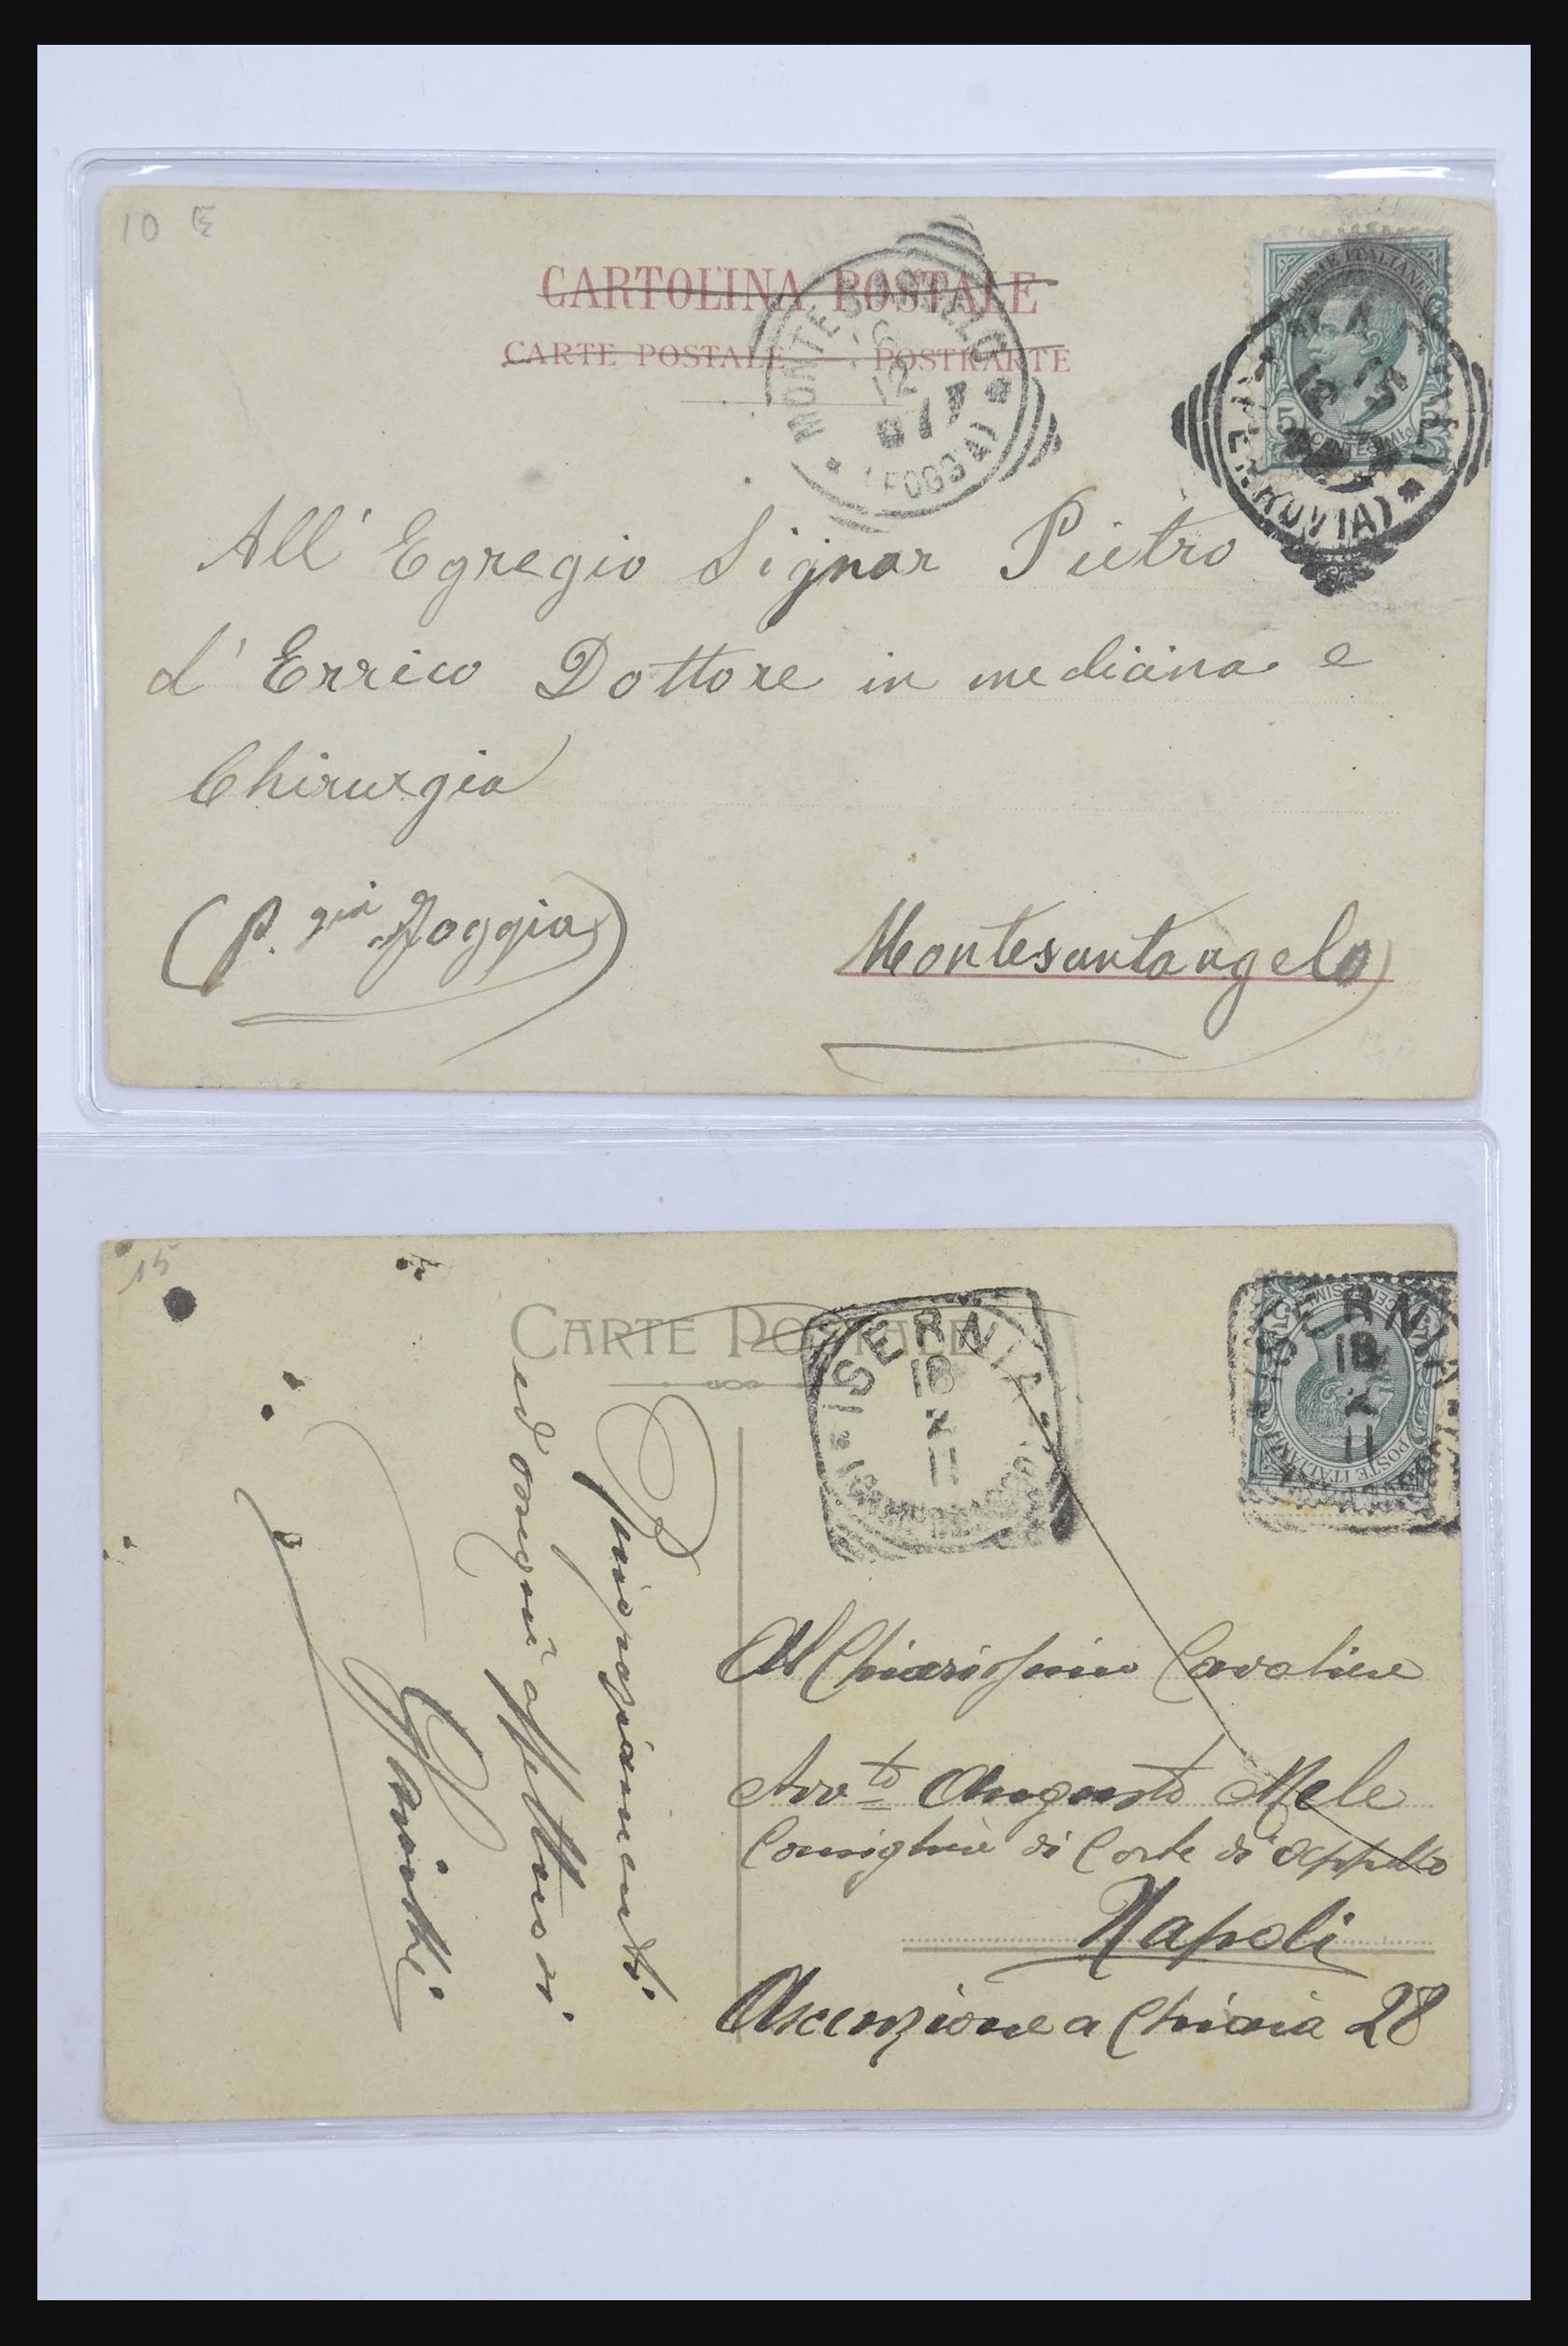 10 E
CARTOLINA POSTALE
CARTE POSTALE — POSTKARTE
MONTE S. ANGELO
12
(FOGGIA)
POSTE ITALIANE
5 CENTESIMI 5
(FERROVIA)
All' Egregio Signor Pietro
d' Errico Dottore in medicina e
Chirurgia
(P. gia Foggia)
Montesantangelo
15
CARTE POSTALE
ISERNIA
18
X
11
(CAMPOBASSO)
ISERNIA
18
X
11
POSTE ITALIANE
Ringraziamenti
ed ossequi affettuosi.
Al Chiarissimo Cavaliere
Avv.to Augusto Mele
Consigliere di Corte di Appello
Napoli
Ascenzione a Chiaia 28